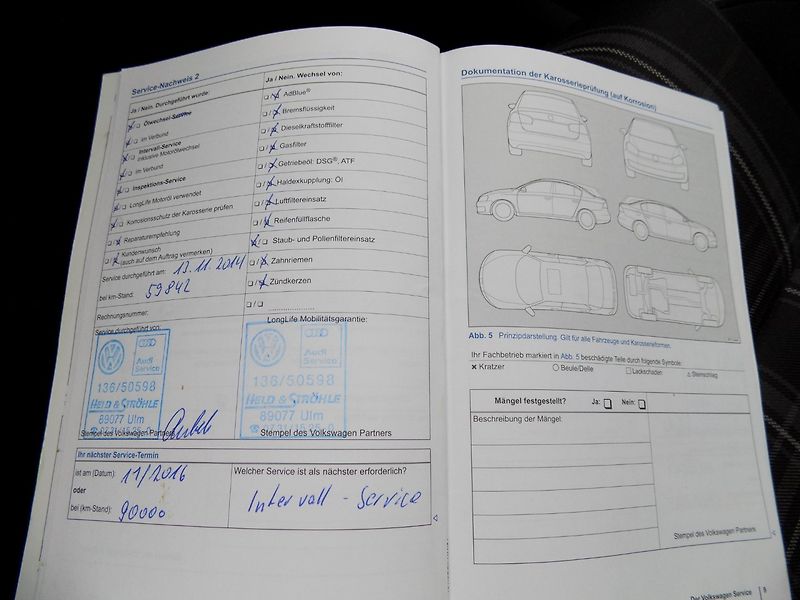 Service-Nachweis 2
Ja / Nein. Durchgeführt wurde:
Ölwechsel-Service
im Verbund
Intervall-Service
inklusive Motorölwechsel
im Verbund
Inspektions-Service
LongLife Motoröl verwendet
Korrosionsschutz der Karosserie prüfen
Reparaturempfehlung
Kundenwunsch
(auch auf dem Auftrag vermerken)
Service durchgeführt am: 13.11.2014
bei km-Stand: 59842
Rechnungsnummer:
Service durchgeführt von:
Audi
Service
136/50598
HELD & STRÖHLE
89077 Ulm
Stempel des Volkswagen Partners
Ja / Nein. Wechsel von:
AdBlue®
Bremsflüssigkeit
Dieselkraftstofffilter
Gasfilter
Getriebeöl: DSG®, ATF
Haldexkupplung: Öl
Luftfiltereinsatz
Reifenfüllflasche
Staub- und Pollenfiltereinsatz
Zahnriemen
Zündkerzen
LongLife Mobilitätsgarantie:
Audi
Service
136/50598
HELD & STRÖHLE
89077 Ulm
Stempel des Volkswagen Partners
Ihr nächster Service-Termin
ist am (Datum): 11/2016
oder
bei (km-Stand): 90000
Welcher Service ist als nächster erforderlich?
Intervall - Service
Dokumentation der Karosserieprüfung (auf Korrosion)
Abb. 5 Prinzipdarstellung. Gilt für alle Fahrzeuge und Karosserieformen.
Ihr Fachbetrieb markiert in Abb. 5 beschädigte Teile durch folgende Symbole:
Kratzer Beule/Delle Lackschaden Steinschlag
Mängel festgestellt? Ja: Nein:
Beschreibung der Mängel:
Stempel des Volkswagen Partners
Der Volkswagen Service 9